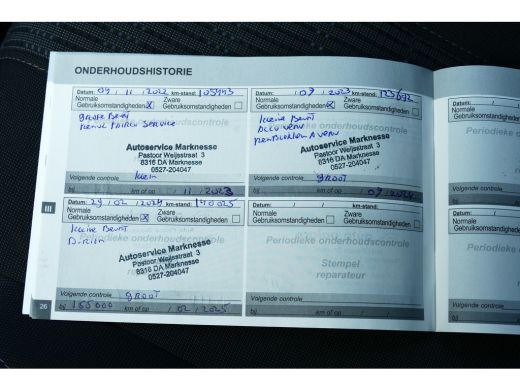 ONDERHOUDSHISTORIE
Datum: 04 / 11 / 2022 km-stand: 105943
Normale Gebruiksomstandigheden X
Zware Gebruiksomstandigheden
Grote Beurt
Autoservice Marknesse
Pastoor Weijsstraat 3
8316 DA Marknesse
0527-204047
Volgende controle Klein
bij km of op / 11 / 2023
Datum: / 07 / 2023 km-stand: 123692
Normale Gebruiksomstandigheden X
Zware Gebruiksomstandigheden
Periodieke onderhoudscontrole
Kleine Beurt
Accu verv
Autoservice Marknesse
Pastoor Weijsstraat 3
8316 DA Marknesse
0527-204047
Volgende controle GROOT
bij km of op / 07 / 2024
III
Datum: 29 / 02 / 2024 km-stand: 140025
Normale Gebruiksomstandigheden X
Zware Gebruiksomstandigheden
Periodieke onderhoudscontrole
Kleine Beurt
Autoservice Marknesse
Pastoor Weijsstraat 3
8316 DA Marknesse
0527-204047
Volgende controle GROOT
bij 155000 km of op / 02 / 2025
Datum: / / km-stand:
Normale Gebruiksomstandigheden
Zware Gebruiksomstandigheden
Periodieke onderhoudscontrole
Stempel
reparateur
Volgende controle
bij km of op / /
26
Datum: / /
Normale
Gebruiksomstandigheden
Periodieke
Volgende controle
bij
Datum: / /
Normale
Gebruiksomstandigheden
Periodieke
Volgende controle
bij